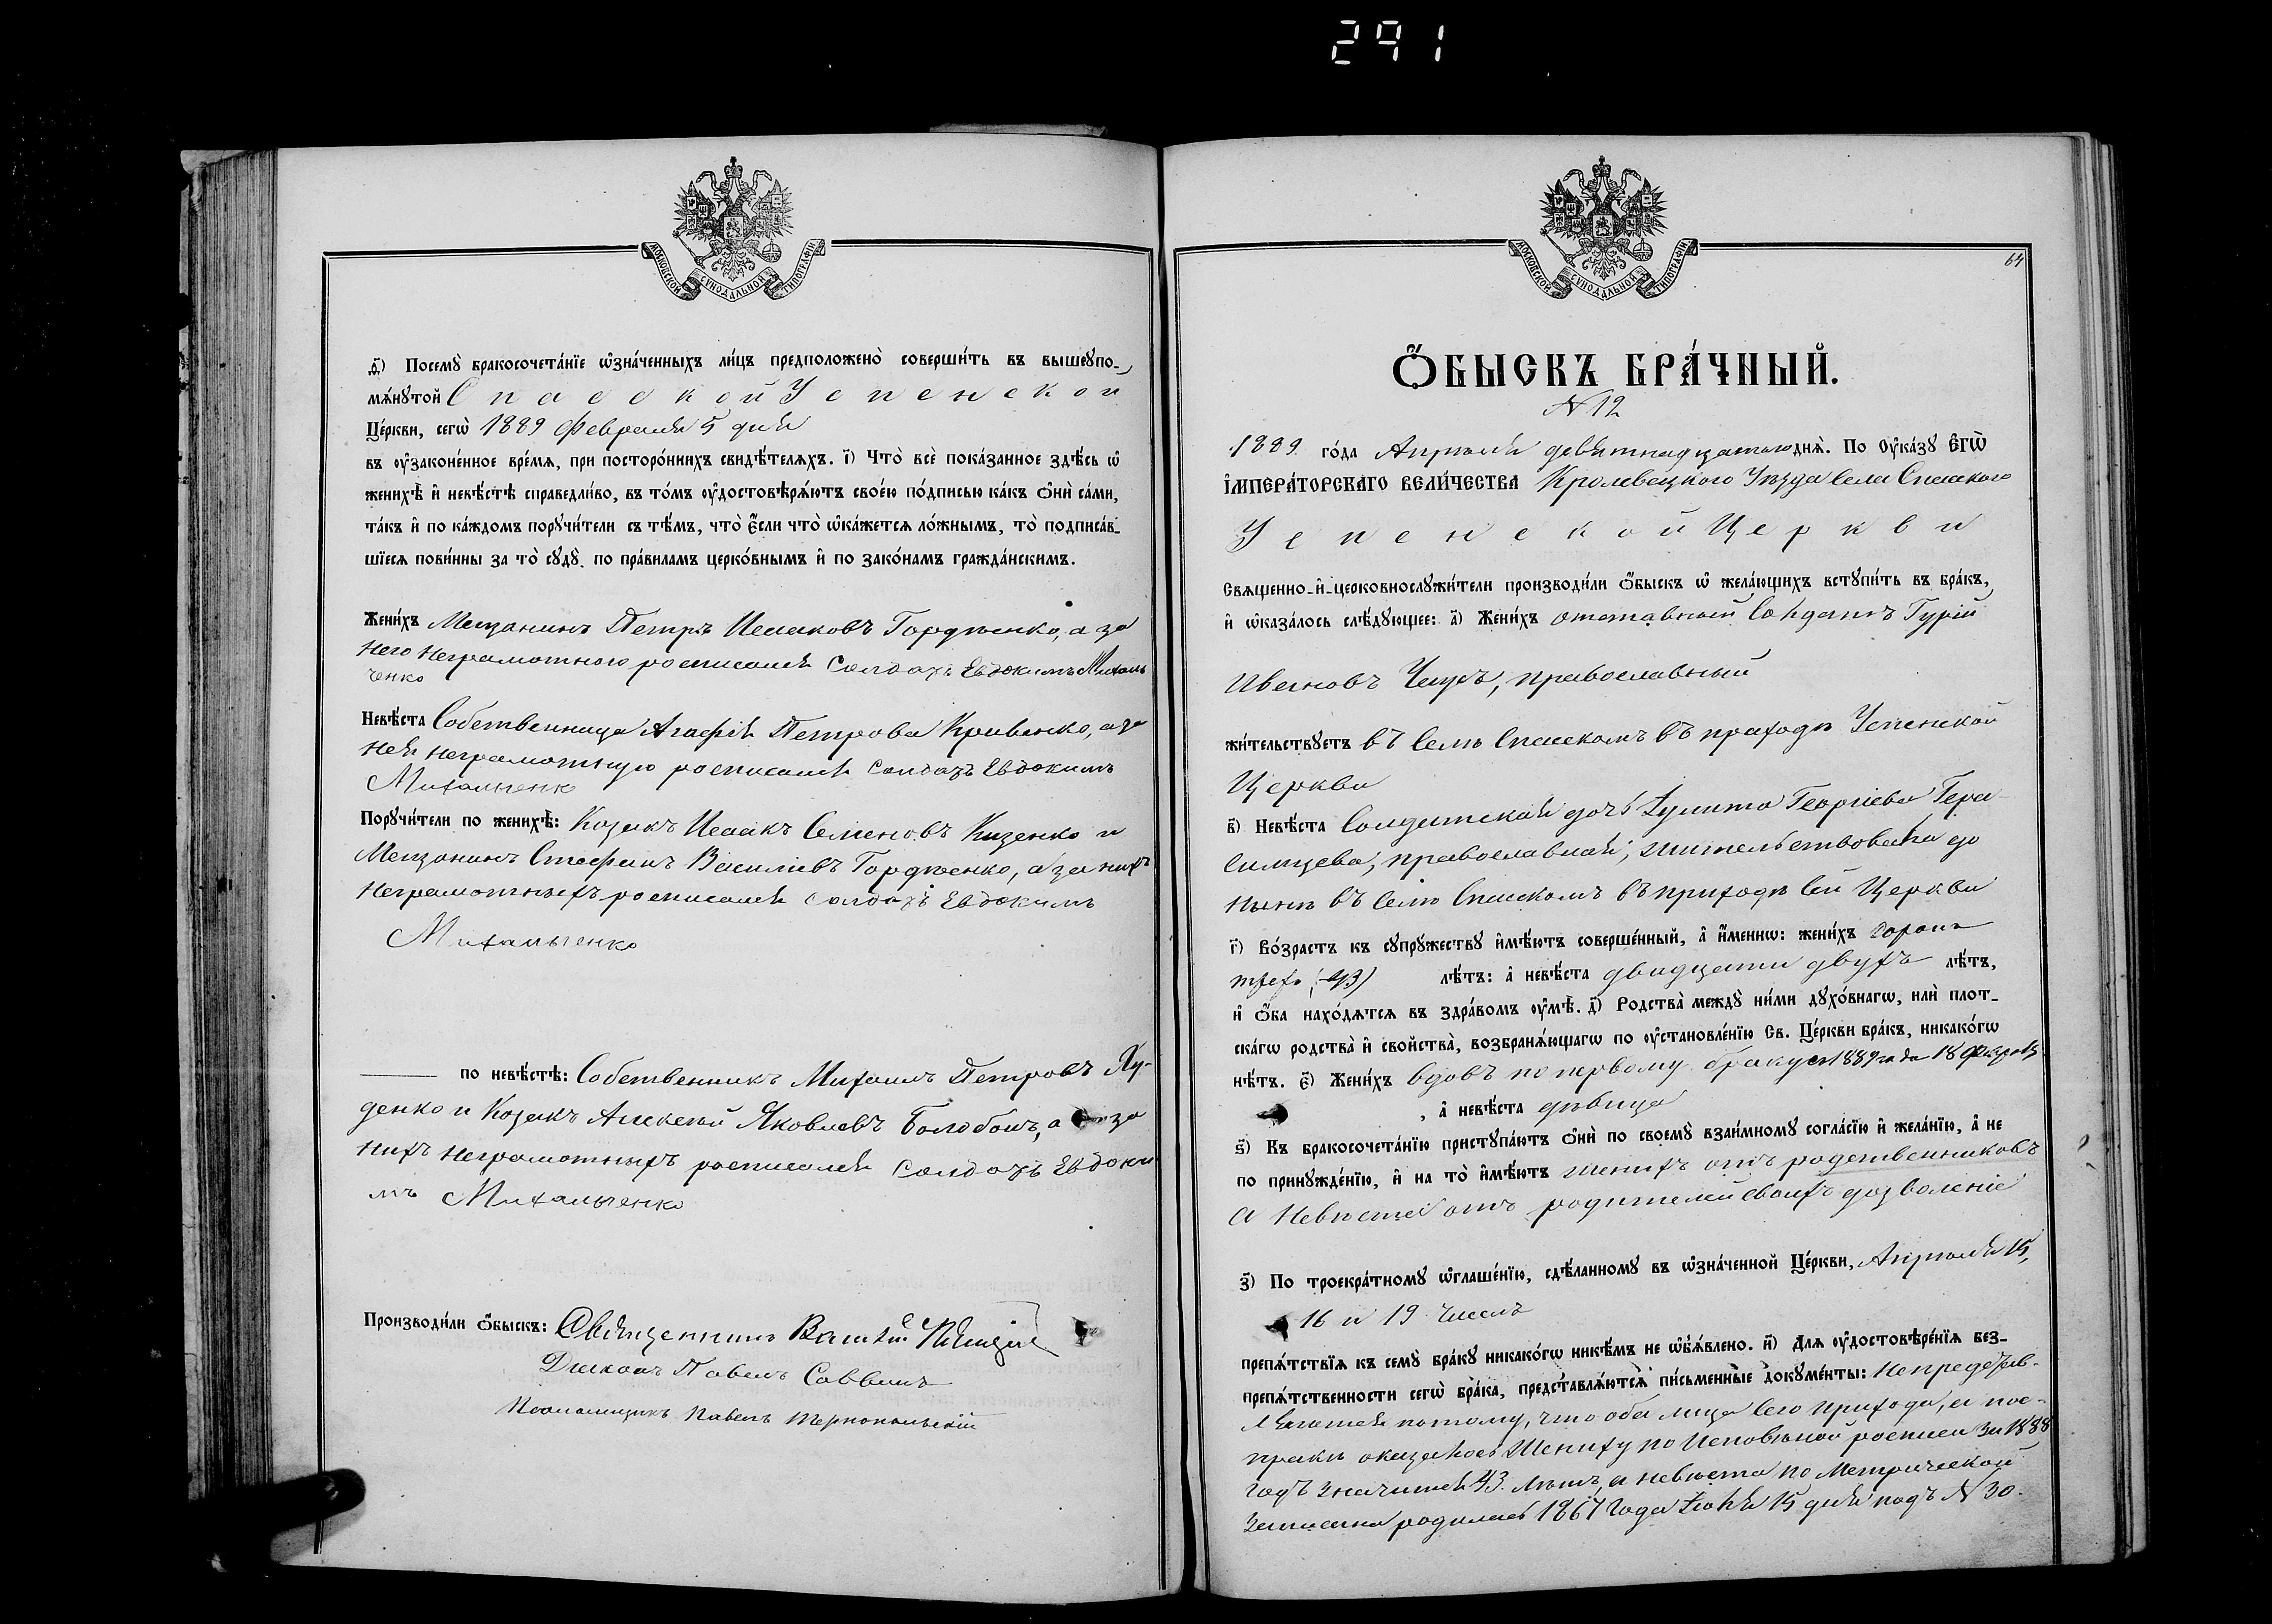 291
МОСКОВСКОЙ СѴНОДАЛЬНОЙ ТИПОГРАФІИ
д҃) Посемꙋ̀ бракосочета́нїе ѡ҆зна́ченныхъ ли́цъ предположено̀ соверши́ть въ вышеꙋпо-
мѧ́нꙋтой Спасской Успенской
Це́ркви, сегѡ̀ 1889 Февраля 5 дня
въ ᲂу҆законе́нное вре́мѧ, при посторо́ннихъ свидѣ́телѧхъ. і҃) Что̀ всѐ пока́занное здѣ́сь ѡ҆
женихѣ̀ и҆ невѣ́стѣ справедли́во, въ то́мъ ᲂу҆достовѣрѧ́ютъ свое́ю по́дписью ка́къ ѻ҆нѝ са́ми,
та́къ и҆ по ка́ждомъ порꙋчи́тели съ тѣ́мъ, что̀ є҆́сли что̀ ѡ҆ка́жетсѧ ло́жнымъ, то̀ подписа́в-
шїесѧ пови́нны за то̀ сꙋдꙋ̀ по пра́виламъ церко́внымъ и҆ по зако́намъ гражда́нскимъ.
Жени́хъ Мещанинъ Петръ Исааковъ Гордѣенко, а за
него неграмотного росписался Солдатъ Евдокимъ Михаль
ченко
Невѣ́ста Собственница Агафія Петрова Кривенко, а за
нея неграмотную росписался солдатъ Евдокимъ
Михальченко
Порꙋчи́тели по женихѣ̀: Козакъ Исаакъ Семеновъ Кизенко и
Мещанинъ Стефанъ Василіевъ Гордѣенко, а за нихъ
неграмотныхъ росписался солдатъ Евдокимъ
Михальченко
по невѣ́стѣ: Собственникъ Михаилъ Петровъ Ху-
денко и Козакъ Алексѣй Яковлевъ Болобонъ, а за
нихъ неграмотныхъ росписался солдатъ Евдоки
мъ Михальченко
Производи́ли ѻ҆́быскъ: Священникъ
Діаконъ Павелъ Саввинъ
Псаломщикъ Павелъ Тернопольскій
64
Ѻ҆́БЫСКЪ БРА́ЧНЫЙ.
N 12
1889 го́да Апрѣля девятнадцатого днѧ̀. По Оу҆ка́зꙋ Є҆гѡ̀
І҆мпера́торскагѡ вели́чества Кролевецкого Уѣзда села Спасского
Успенской Церкви
Свѧщенно-и҆-церковнослꙋжи́тели производи́ли ѻ҆́быскъ ѡ҆ жела́ющихъ встꙋпи́ть въ бра́къ,
и҆ ѡ҆каза́лось слѣ́дꙋющее: а҃) Жени́хъ отставный Солдатъ Гурій
Ивановъ, православный
жи́тельствꙋетъ въ Селѣ Спасскомъ въ приходѣ Успенской
Церкви
в҃) Невѣ́ста Солдатская дочь Іулита Георгіева Гера-
симцева, православная, жительствовала до
нынѣ въ Селѣ Спасскомъ въ приходѣ сей Церкви
г҃) Во́зрастъ къ сꙋпрꙋ́жествꙋ и҆мѣ́ютъ соверше́нный, а҆ и҆́меннѡ: жени́хъ сорокъ
трехъ (43) лѣ́тъ: а҆ невѣ́ста двадцати двухъ лѣ́тъ,
и҆ ѻ҆́ба нахо́дѧтсѧ въ здра́вомъ ᲂу҆мѣ̀. д҃) Родства̀ междꙋ̀ ни́ми дꙋхо́внагѡ, илѝ плот-
ска́гѡ родства̀ и҆ сво́йства̀, возбранѧ́ющагѡ по ᲂу҆становле́нїю Св. Це́ркви бра́къ, никако́гѡ
нѣ́тъ. є҃) Жени́хъ вдовъ по первому браку съ 1889 го да 18 Февраля
, а҆ невѣ́ста дѣвица
ѕ҃) Къ бракосочета́нїю пристꙋпа́ютъ ѻ҆нѝ по своемꙋ̀ взаи́мномꙋ согла́сїю и҆ жела́нїю, а҆ не
по принꙋжде́нїю, и҆ на то̀ и҆мѣ́ютъ женихъ отъ родственниковъ
а невѣста отъ родителей своихъ дозволеніе
з҃) По троекра́тномꙋ ѡ҆глаше́нїю, сдѣ́ланномꙋ въ ѡ҆зна́ченной Це́ркви, Апрѣля 15,
16 и 19 числъ
препѧ́тствїѧ къ семꙋ̀ бра́кꙋ никако́гѡ никѣ́мъ не ѡ҆б̾ѧ́влено. и҃) Длѧ ᲂу҆достовѣре́нїѧ без-
препѧ́тственности сегѡ̀ бра́ка, представлѧ́ютсѧ пи́сьменные докꙋме́нты: Не представ-
ляются потому, что оба лица сего прихода, а по с-
правкѣ оказалось Жениху по Исповѣдной росписи за 1888
годъ значится 43 лѣтъ, а невѣста по Метрической
Записана родилась 1867 года Іюля 15 дня подъ N 30.